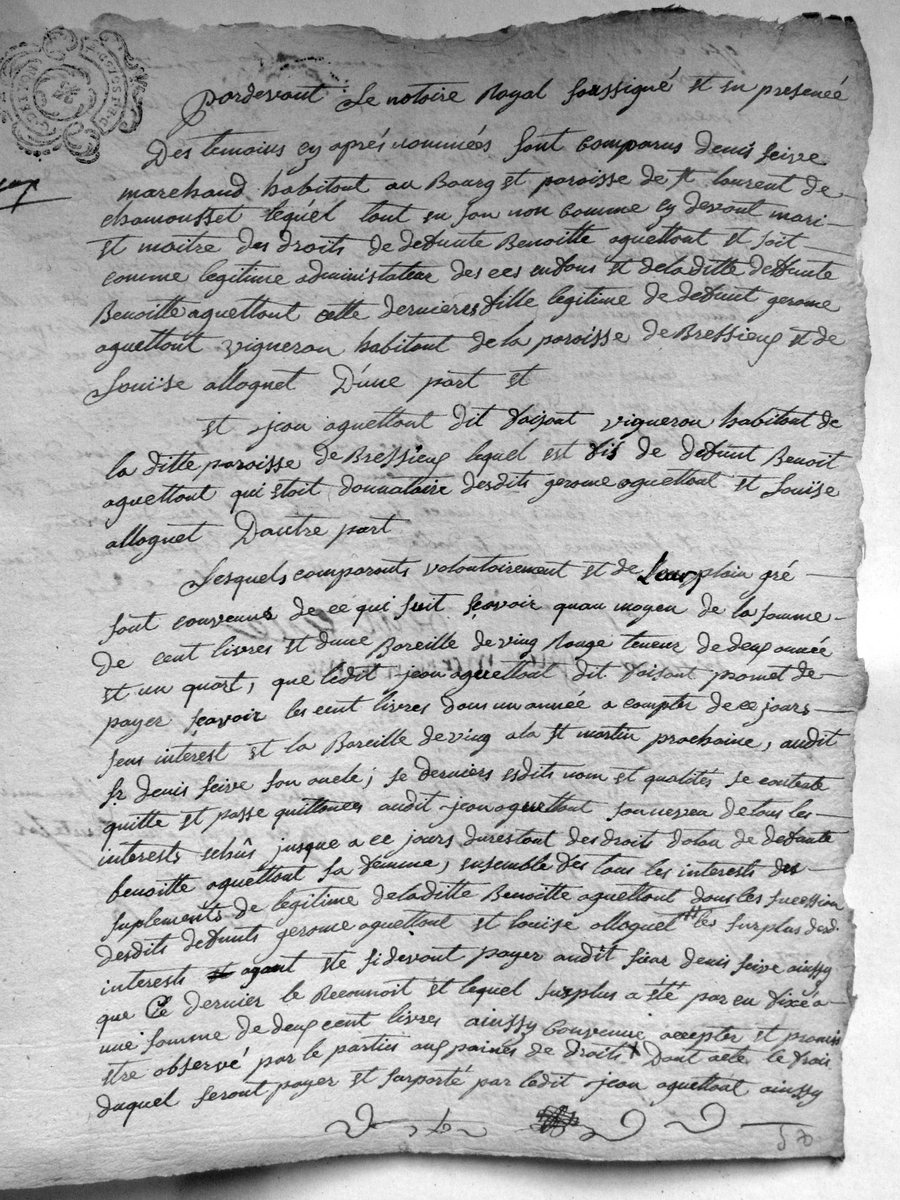 pardevant Le notaire Royal soussigné et en presencé
Des temoins cy aprés nommées sont Comparus denis seive
marchand habitant au Bourg et paroisse de st laurent de
chamousset lequél tant en son non Comme cy devant mari
et maitre des droits de defunte Benoitte aguettant et soit
comme legitime administateur des ces enfans et de la ditte defunte
Benoitte aguettant cette dernieres fille legitime de defunt gerome
aguettant vigneron habitant de la paroisse de Bressieux et de
Louise alloguet D'une part et
et jean aguettant dit faisant vigneron habitant de
la ditte paroisse de Bressieux lequel est fis de defunt Benoit
aguettant qui etoit donnataire desdits gerome aguettant et Louise
alloguet Dautre part
Lesquels comparants volontairement et de Leur plain gré
sont convenus de ce qui suit scavoir quau moyen de la somme
De cent livres et dune Bareille de ving Rouge teneur de deux année
et un quart, que ledit jean aguettant dit faisant promet de
payer scavoir les cent livres dans un année a compter de ce jours
sens interest et la Bareille de ving a la st martin prochaine, audit
sr denis seive son oncle; se derniers esdits nom et qualités se contente
quitte et passe quittances audit jean aguettant son neveu de tous les
interests echûs jusque a ce jours du restant des droits dotau de defunte
benoitte aguettant sa femme, ensemble des tous les interests des
suplements de legitime de la ditte Benoitte aguettant dans les sucession
desdits defunts gerome aguettant et louise alloguet les surplus desd.
interests ayant ete si devant payer audit siear denis seive ainssy
que Ce dernier le Reconnoit et lequel surplus a eté par eu fixé a
une somme de deux cent livres ainssy Convenu accepter et promis
etre observé par le parties aux paines de droits Dont acte le frais
duquel seront payer et suporté par ledit jean aguettant ainssy